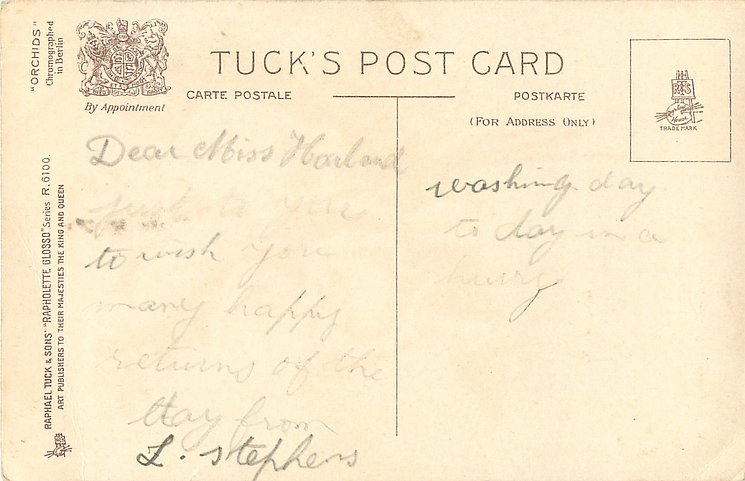 "ORCHIDS"
Chromographed
in Berlin
By Appointment
TUCK'S POST CARD
CARTE POSTALE
POSTKARTE
(FOR ADDRESS ONLY)
TRADE MARK
RAPHAEL TUCK & SONS' "RAPHOLETTE GLOSSO" Series R. 6100.
ART PUBLISHERS TO THEIR MAJESTIES THE KING AND QUEEN
Dear Miss Harland
you
to wish you
many happy
returns of the
day from
L. stephens
washing day
to day in a
hurry